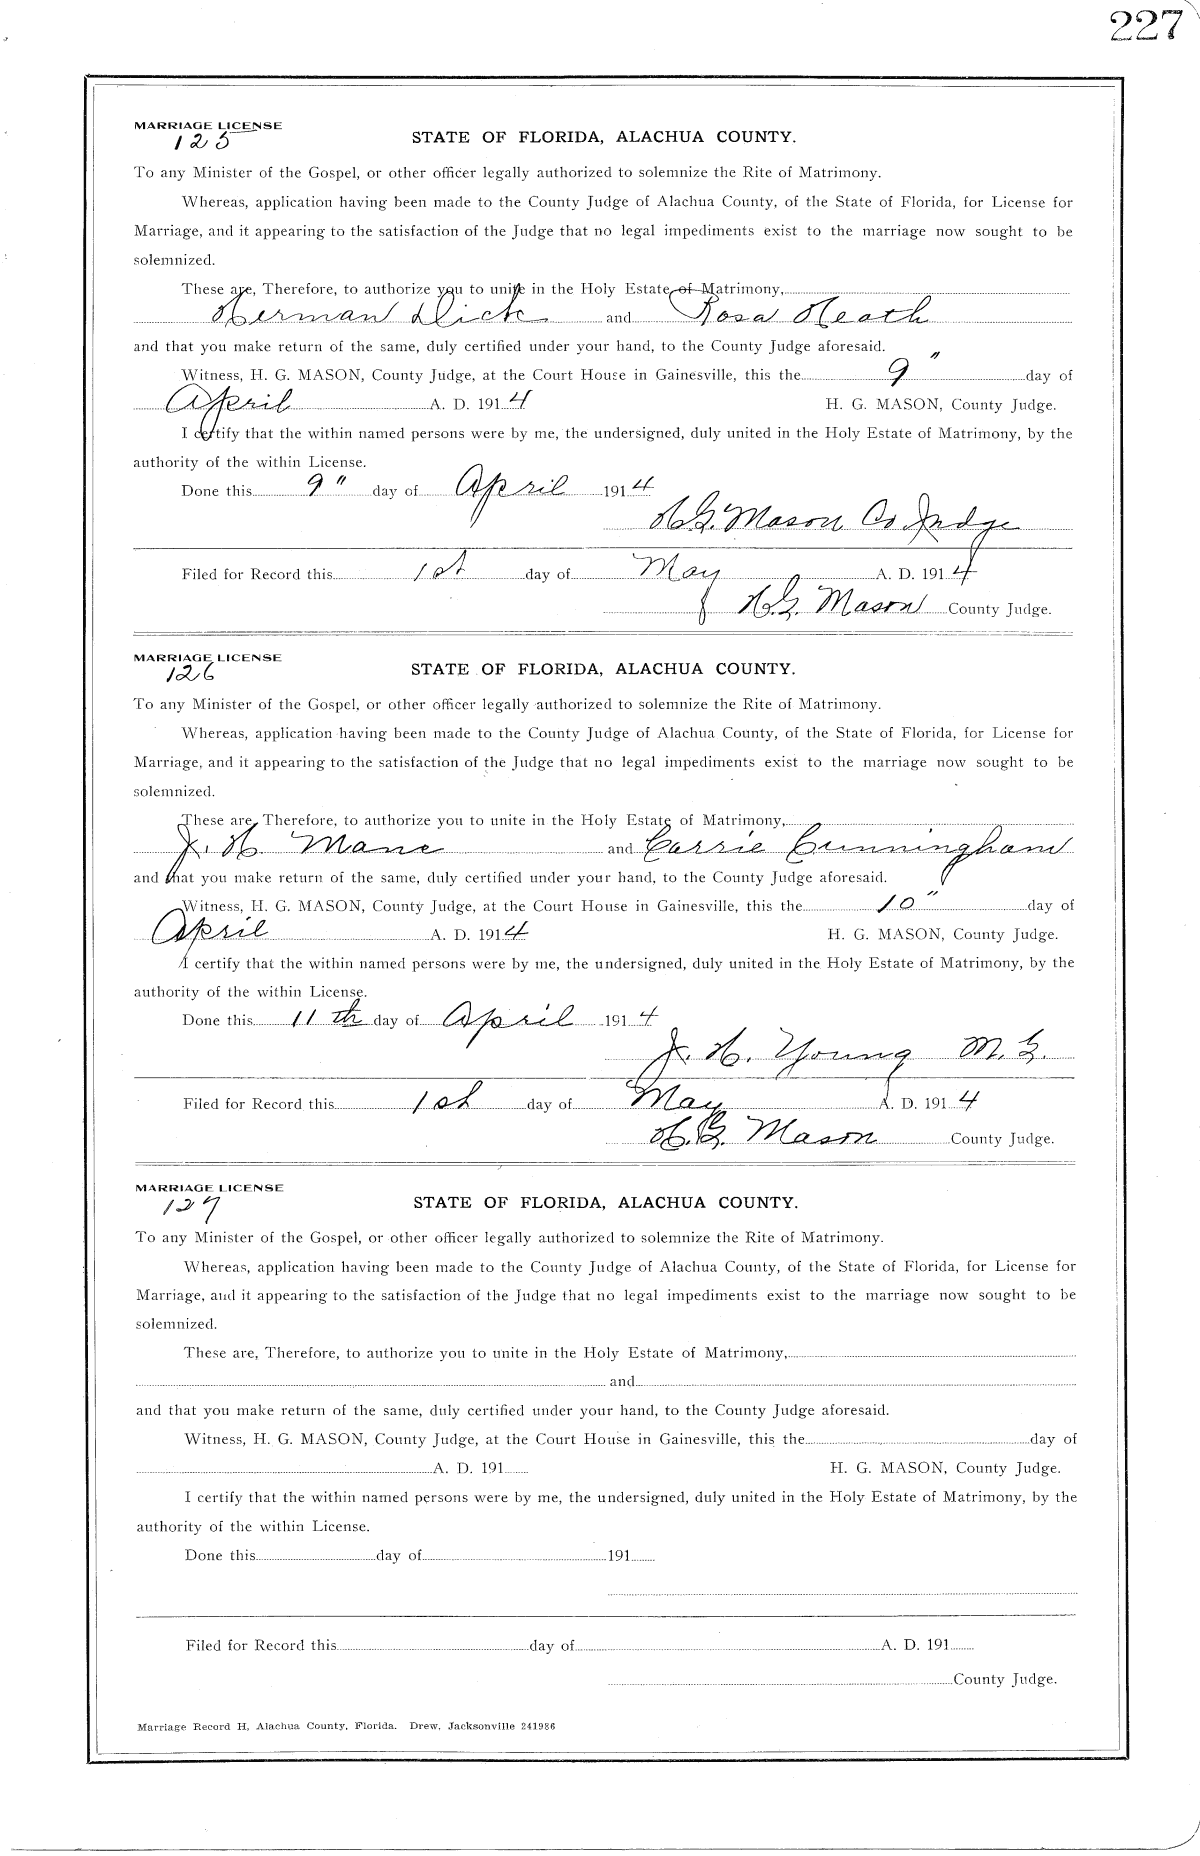 227
MARRIAGE LICENSE
125
STATE OF FLORIDA, ALACHUA COUNTY.
To any Minister of the Gospel, or other officer legally authorized to solemnize the Rite of Matrimony.
Whereas, application having been made to the County Judge of Alachua County, of the State of Florida, for License for
Marriage, and it appearing to the satisfaction of the Judge that no legal impediments exist to the marriage now sought to be
solemnized.
These are, Therefore, to authorize you to unite in the Holy Estate of Matrimony,
Herman Dick and Rosa Heath
and that you make return of the same, duly certified under your hand, to the County Judge aforesaid.
Witness, H. G. MASON, County Judge, at the Court House in Gainesville, this the 9" day of
April A. D. 1914 H. G. MASON, County Judge.
I certify that the within named persons were by me, the undersigned, duly united in the Holy Estate of Matrimony, by the
authority of the within License.
Done this 9" day of April 1914
H.G. Mason Co Judge
Filed for Record this 1st day of May A. D. 1914
H.G. Mason County Judge.
MARRIAGE LICENSE
126
STATE OF FLORIDA, ALACHUA COUNTY.
To any Minister of the Gospel, or other officer legally authorized to solemnize the Rite of Matrimony.
Whereas, application having been made to the County Judge of Alachua County, of the State of Florida, for License for
Marriage, and it appearing to the satisfaction of the Judge that no legal impediments exist to the marriage now sought to be
solemnized.
These are, Therefore, to authorize you to unite in the Holy Estate of Matrimony,
J. H. Mane and Carrie Cunningham
and that you make return of the same, duly certified under your hand, to the County Judge aforesaid.
Witness, H. G. MASON, County Judge, at the Court House in Gainesville, this the 10" day of
April A. D. 1914 H. G. MASON, County Judge.
I certify that the within named persons were by me, the undersigned, duly united in the Holy Estate of Matrimony, by the
authority of the within License.
Done this 11th day of April 1914
J. H. Young M.G.
Filed for Record this 1st day of May A. D. 1914
H.G. Mason County Judge.
MARRIAGE LICENSE
127
STATE OF FLORIDA, ALACHUA COUNTY.
To any Minister of the Gospel, or other officer legally authorized to solemnize the Rite of Matrimony.
Whereas, application having been made to the County Judge of Alachua County, of the State of Florida, for License for
Marriage, and it appearing to the satisfaction of the Judge that no legal impediments exist to the marriage now sought to be
solemnized.
These are, Therefore, to authorize you to unite in the Holy Estate of Matrimony,
and
and that you make return of the same, duly certified under your hand, to the County Judge aforesaid.
Witness, H. G. MASON, County Judge, at the Court House in Gainesville, this the day of
A. D. 191 H. G. MASON, County Judge.
I certify that the within named persons were by me, the undersigned, duly united in the Holy Estate of Matrimony, by the
authority of the within License.
Done this day of 191
Filed for Record this day of A. D. 191
County Judge.
Marriage Record H, Alachua County, Florida. Drew, Jacksonville 241986